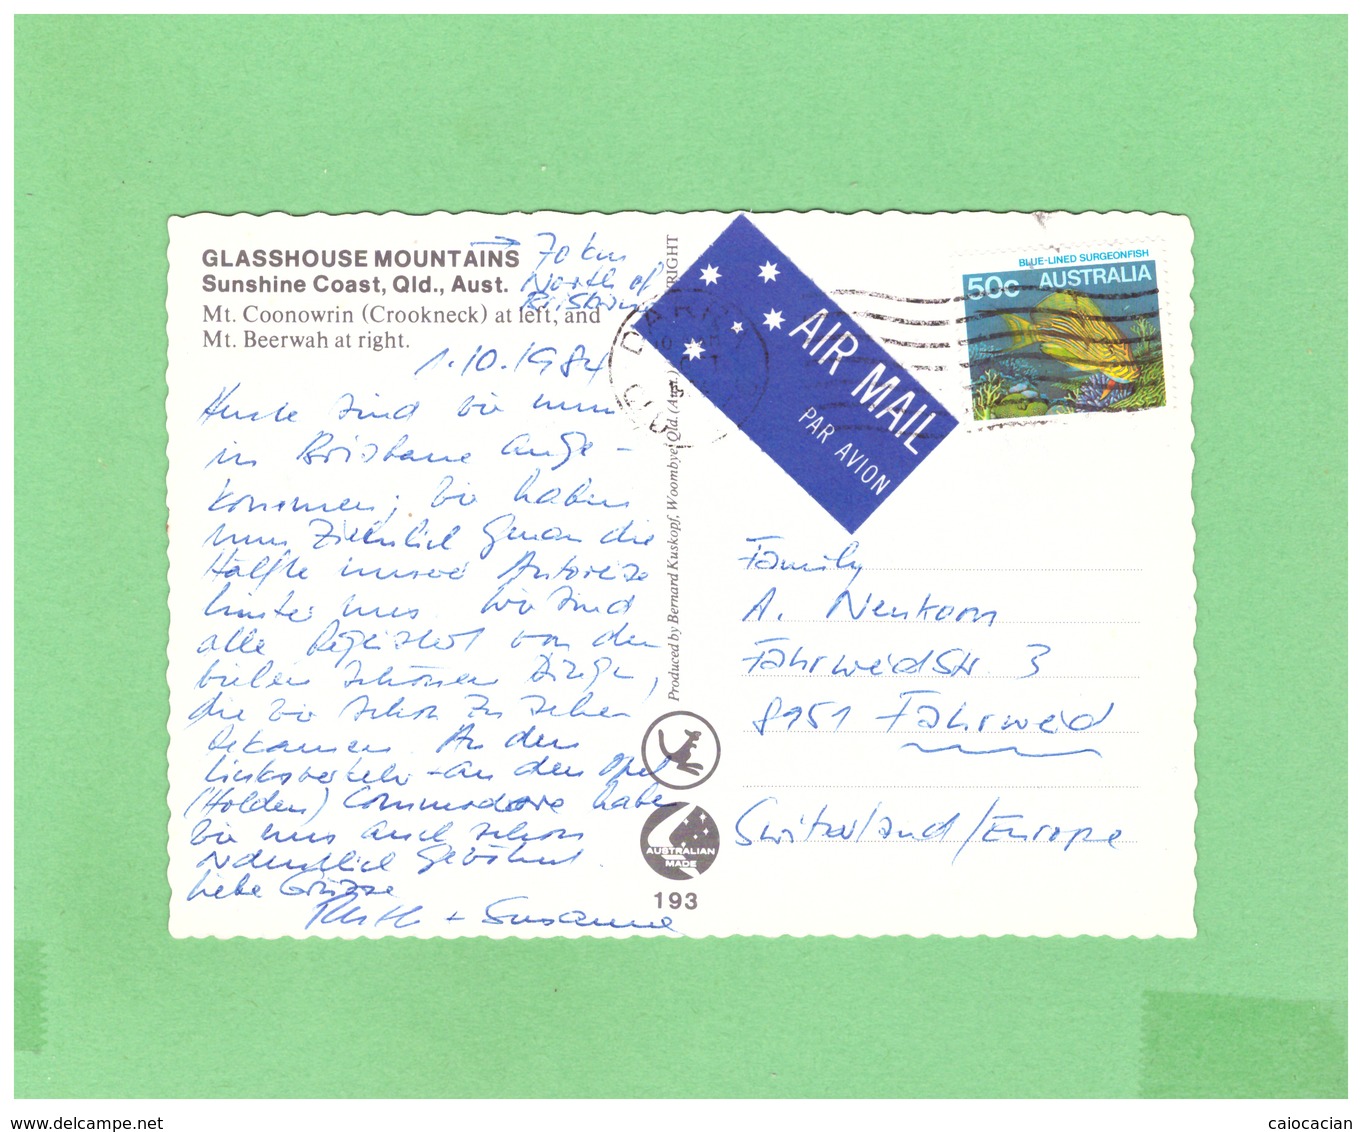 GLASSHOUSE MOUNTAINS
Sunshine Coast, Qld., Aust.
Mt. Coonowrin (Crookneck) at left, and
Mt. Beerwah at right.
→ 70 km
North of
Brisbane
1.10.1984
Heute sind wir nun
in Brisbane ange-
kommen; wir haben
nun ziemlich genau die
Hälfte unserer Autoreise
hinter uns. Wir sind
alle begeistert von den
vielen schönen Dingen,
die wir schon zu sehen
bekamen. An den
Linksverkehr - an den Opel
(Holden) Commodore habe
wir uns auch schon
gewöhnt.
Liebe Grüsse
Ruth + Susanne
Produced by Bernard Kuskopf, Woombye, Qld. (Aust.)
RIGHT
AUSTRALIAN
MADE
193
AIR MAIL
PAR AVION
BLUE-LINED SURGEONFISH
50c AUSTRALIA
Family
A. Neukom
Fahrweidstr. 3
8951 Fahrweid
Switzerland/Europe
www.delcampe.net
caiocacian